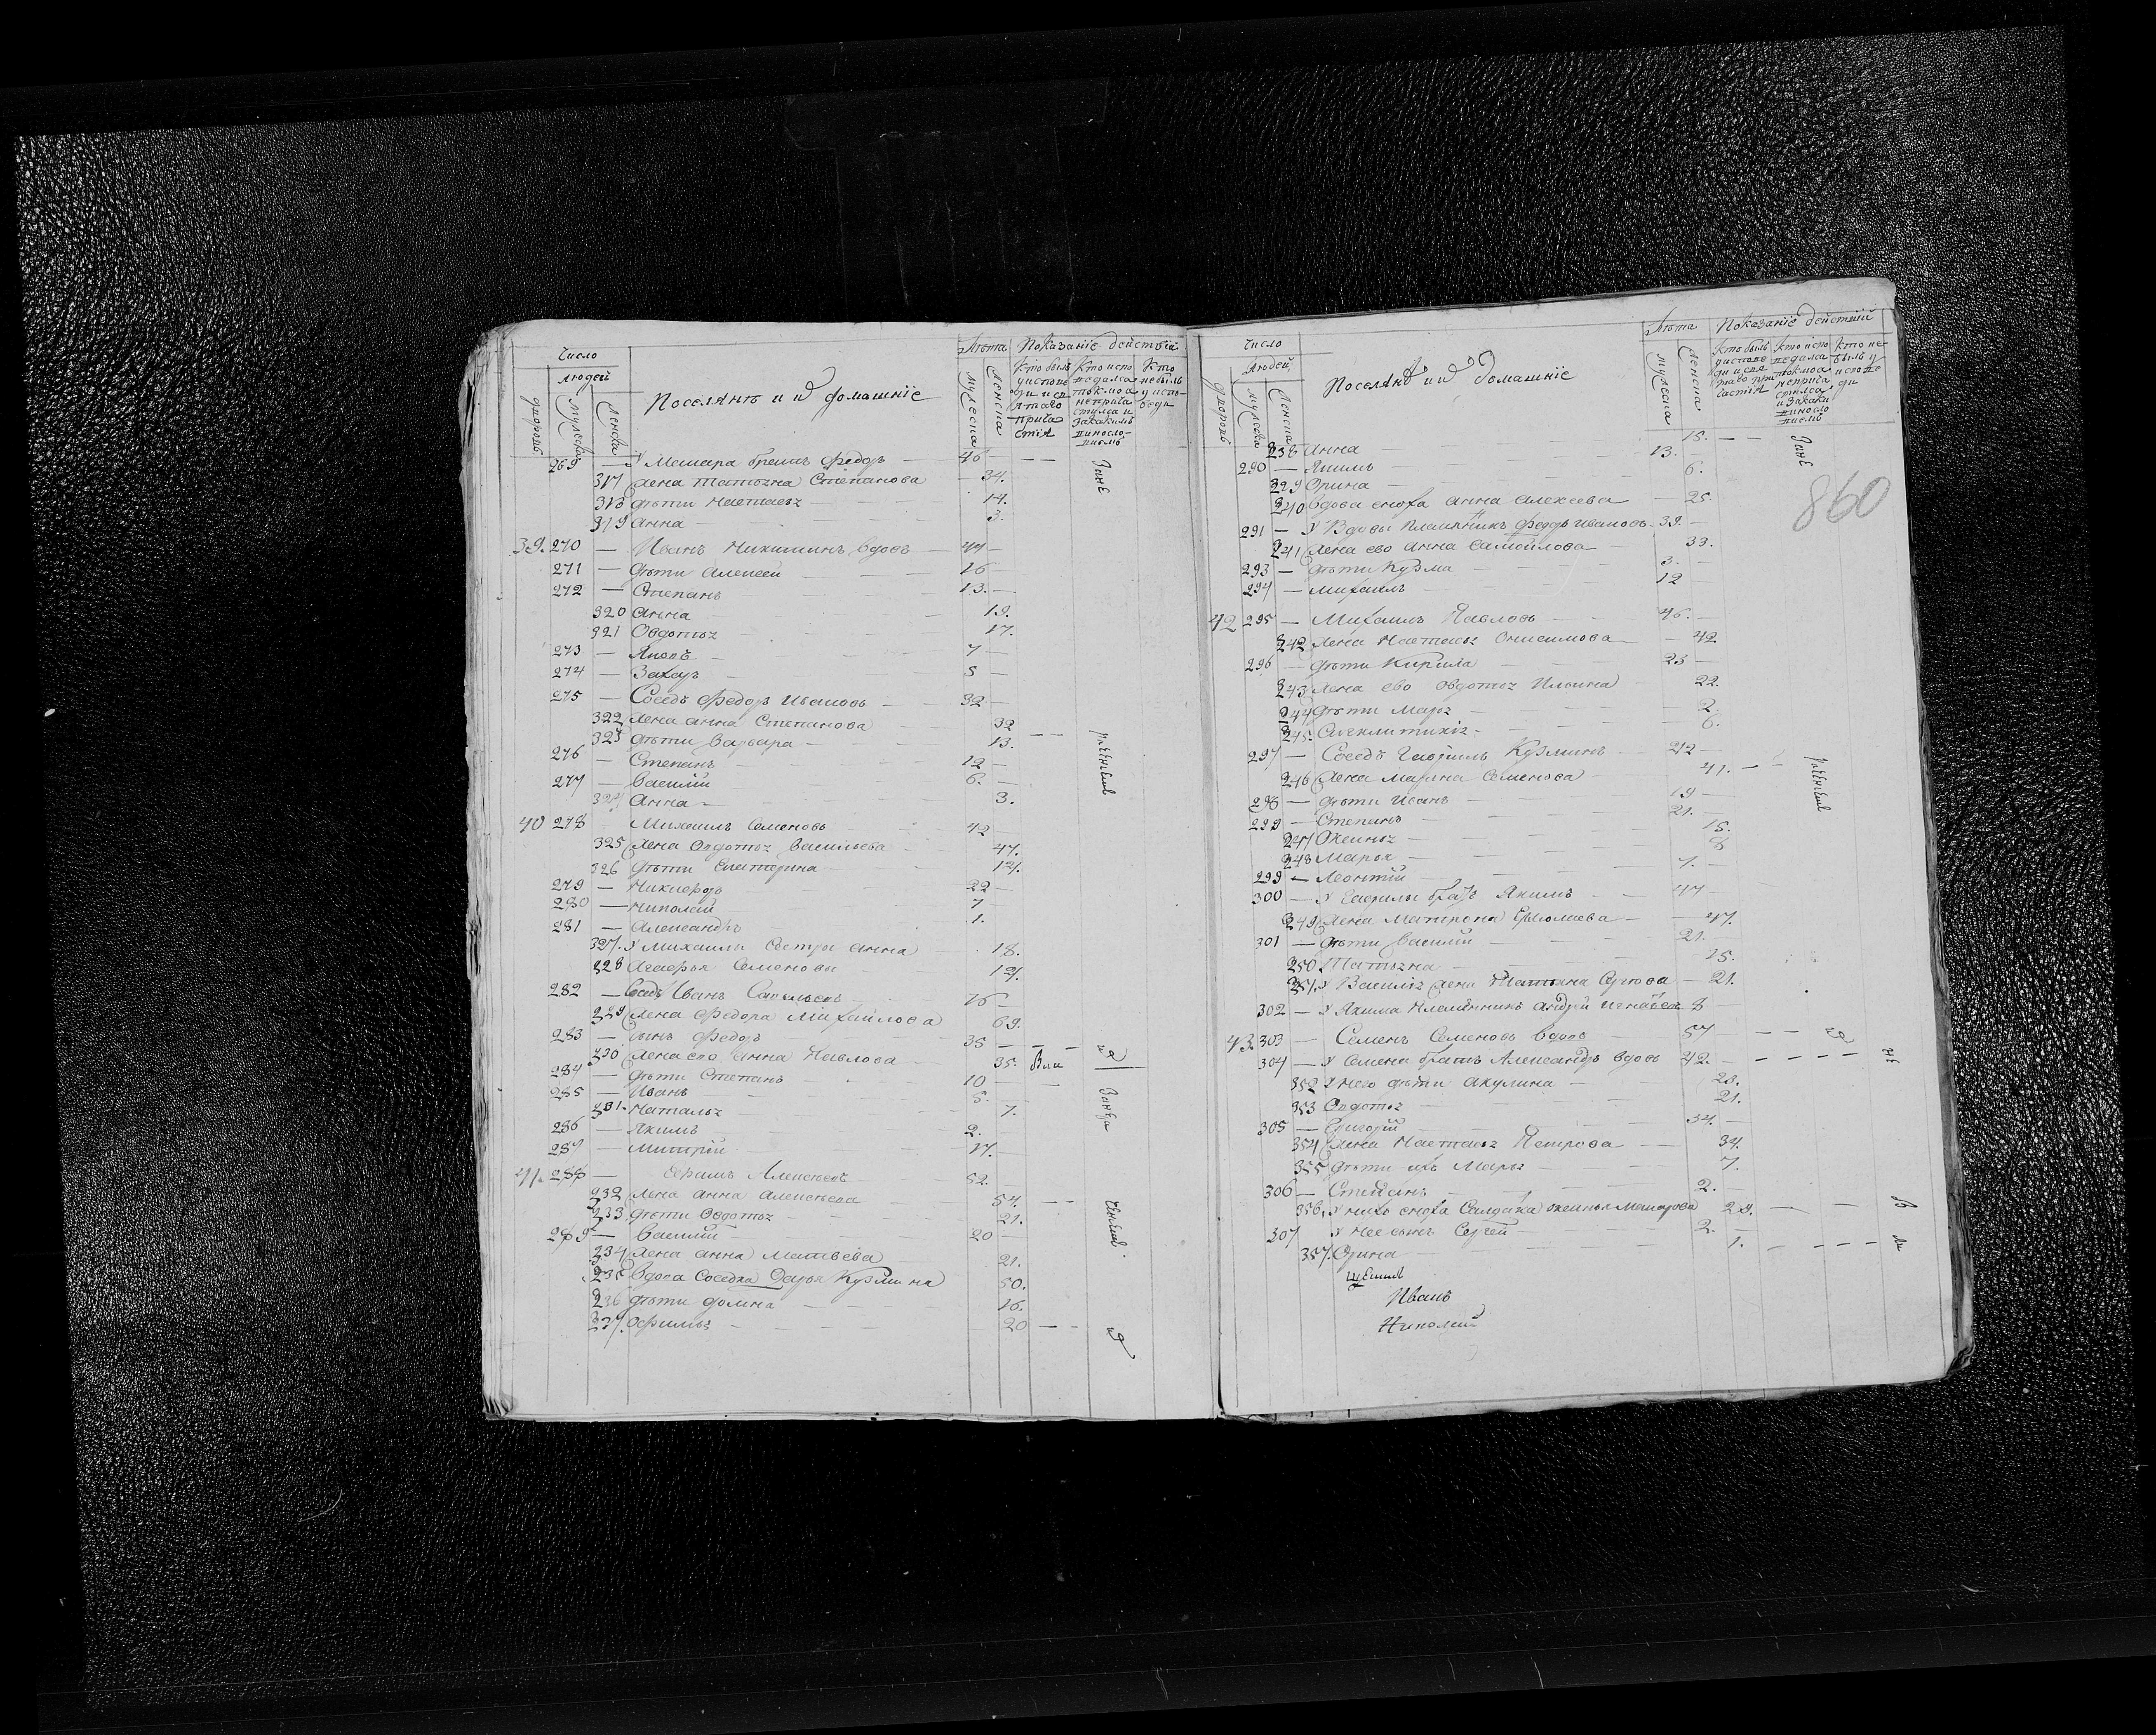 Число
людей
дворовъ
мужеска
женска
Поселянъ и иѵ домашніе
Лѣта
мужеска
женска
Показаніе дѣйствій
Кто былъ
у исповѣ
ди и свя
таго
прича
стія
Кто испо
ведался
токмо а
неприча
стился и
за какимъ
виносло-
віемъ
Кто
небылъ
у испо-
веди
269 — У Макара братъ Федоръ — 46 — —
317 жена Татьяна Степанова — 34.
318 дѣти Настасья 14.
319 Анна — 3.
39. 270 — Иванъ Никитинъ вдовъ — 44 —
271 — дѣти Алексей — 16 —
272 — Степанъ 13. —
320 Анна 19.
321 Овдотья 17.
273 — Яковъ 7 —
274 — Захаръ 5 —
275 — Соседъ Федоръ Ивановъ — 32 —
322 жена Анна Степанова 32
323 дѣти Варвара — 13.
276 — Степанъ 12 —
277 — Василій 6. —
324 Анна — 3.
40 278 Михаилъ Семеновъ 42 —
325 жена Овдотья Васильева 47.
326 дѣти Екатерина 14.
279 — Никифоръ 22 —
280 — Николай 7
281 — Александръ 1.
327. У Михаилы сестры Анна — 18.
328 Агафья Семеновы 14.
282 — Соседъ Иванъ Савельевъ 76 —
329 жена Федора Михайлова 69.
283 — сынъ Федоръ — 35 — — —
330 жена ево Анна Павлова 35.
284 — дѣти Степанъ — 10 —
285 — Иванъ — 8.
331. Наталья 7.
286 — Якимъ — 2.
287 — Митрій 17. —
41. 288 — Ефимъ Алексеевъ 52. —
232 жена Анна Алексеева 54. — —
233 дѣти Овдотья 21.
289 — Василій — 20 —
234 жена Анна Матвѣева 21.
235 вдова соседка Дарья Кузмина 50.
236 дѣти Домна — 16.
237. Офимья — 20 — —
Число
людей
дворовъ
мужеска
женска
Поселянъ и иѵ домашніе
Лѣта
мужеска
женска
Показаніе дѣйствій
860
238 Анна — 15. — —
290 — Якимъ — 13. —
329 Орина — 6.
240 Вдова сноха Анна Алексеева — 25.
291 — У вдовы племянникъ Федоръ Ивановъ — 39. —
241 жена ево Анна Самойлова — 33.
293 — дѣти Кузма 3. —
294 — Михаилъ — 12
42 295 — Михаилъ Павловъ — 46. —
242 жена Настасья Онисимова — 42
296 — дѣти Кирила 23 —
243 жена ево Овдотья Ильина 22.
244 дѣти Марья 2.
245. 6.
297 — Соседъ Гаврилъ Кузминъ — 42 —
246 жена Марина Семенова — 41. — —
298 — дѣти Иванъ 19 —
299 — Степанъ — 21.
247 Оксинья 15.
248 Марья 8
299 — Леонтій — 7. —
300 — У Гаврилы братъ Якимъ — 47
249 жена Матрона Ермолаева — 47.
301 — дѣти Василій 21.
250 Татьяна — 15.
251. У Василья жена Татьяна Сергѣева — 21.
302 — У Якима племянникъ Андрей 8 —
43 303 — Семенъ Семеновъ вдовъ 57 — — —
304 — У Семена братъ Александръ вдовъ 42. — — — — —
352 У него дѣти Акулина — 23.
353 Овдотья 21.
305 — Григорій — 34. —
354 жена Настасья Петрова — 34.
355 дѣти ихъ Марья 7.
306 — Степанъ — 2. —
356. У нихъ сноха салдатка Оксинья Макарова 29. — —
307 У нее сынъ Сергей — 2. —
357. Орина — 1. — — — —
Иванъ
Николай